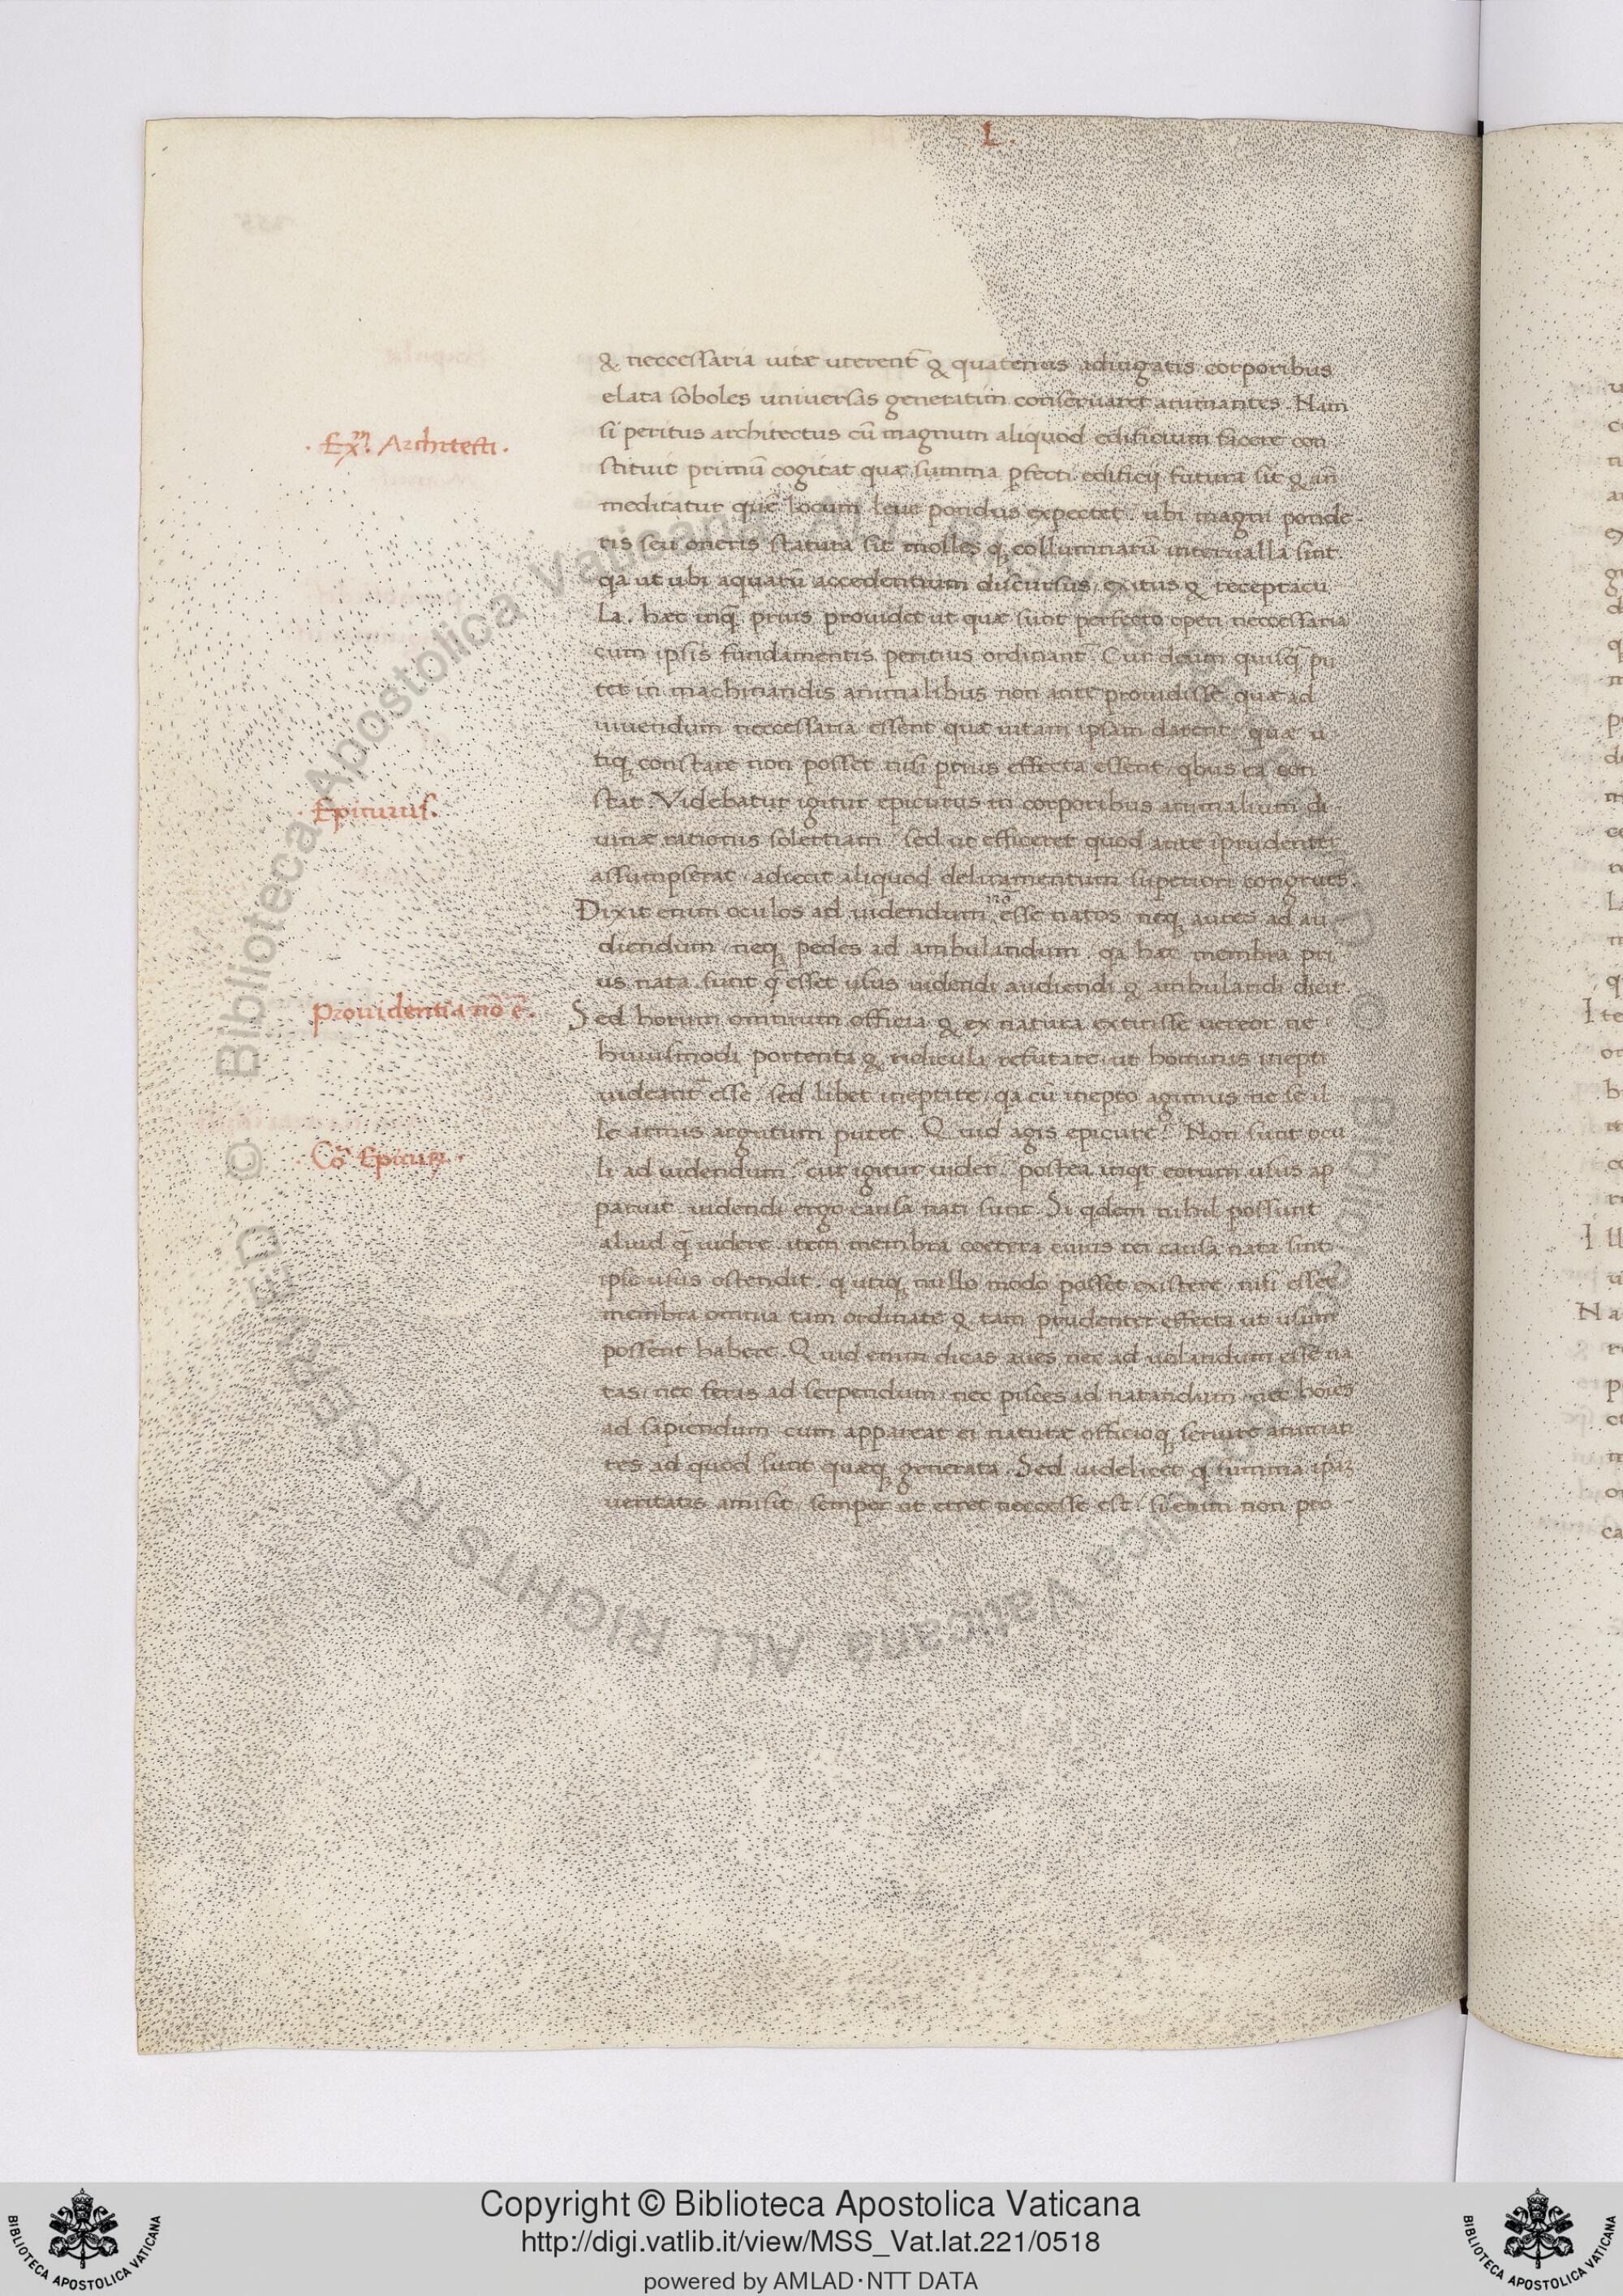 L.
& neccessaria uitæ uterent̄ & quatenus adiugatis corporibus
elata soboles universas generatim conseruaret animantes. Nam
si peritus architectus cū magnum aliquod edificium facere con
. Exᵐ. Architecti.
stituit primū cogitat quæ summa ꝑfecti edificij futura sit & añ
meditatur quē locum leue pondus expectet. ubi magni ponde
ris seu oneris statura sit moles q; collumnarū interualla sint
qa ut ubi aquarū accedentium discursus, exitus & receptacu
la. hæc inq̄ prius prouidet ut quæ sunt perfecto operi neccessaria
cum ipsis fundamentis peritius ordinant̄. Cur deum quisq̄ pu
tet in machinandis animalibus non ante prouidisse quæ ad
uiuendum neccessaria essent quæ uitam ipsam darent. quæ u
tiq; constare non posset nisi prius effecta essent, qbus ea con
. Epicurus.
stat. Videbatur igitur epicurus in corporibus animalium di
uinæ rationis solertiam. sed ut efficeret quod ante īprudenter
assumpserat, adiecit aliquod deliramentum superiori congruēs.
Dixit enim oculos ad uidendum nō esse natos neq; aures ad au
diendum neq; pedes ad ambulandum. qa hæc membra pri
us nata sunt q̄ esset usus uidendi audiendi & ambulandi dicit.
Prouidentia nō ē.
Sed horum omnium officia & ex natura extitisse uereor ne
huiusmodi portenta & ridicula refutare, ut hominis inepti
uideant̄ esse, sed libet ineptire, qa cū inepto agimus ne se il
le nimis argutum putet. Quid agis epicure? Non sunt ocu
. Cō Epicurꝝ.
li ad uidendum. cur igitur uident̄. postea inqt eorum usus ap
paruit. uidendi ergo causa nati sunt. Si qdem nihil possunt
aliud q̄ uidere. item membra coetera cuius rei causa nata sint
ipse usus ostendit. q utiq; nullo modo posset existere, nisi essēt
membra omnia tam ordinate & tam prudenter effecta ut usum
possent habere. Quid enim dicas aues nec ad uolandum esse na
tas, nec feras ad serpendum, nec pisces ad natandum nec hoīēs
ad sapiendum cum appareat ei naturæ officioq; seruire animan
tes ad quod sunt quæq; generata. Sed uidelicet q summā ipsaꝝ
ueritatis amisit, semper ut erret neccesse est. si enim non pro
Copyright © Biblioteca Apostolica Vaticana
http://digi.vatlib.it/view/MSS_Vat.lat.221/0518
powered by AMLAD·NTT DATA
BIBLIOTECA APOSTOLICA VATICANA
BIBLIOTECA APOSTOLICA VATICANA